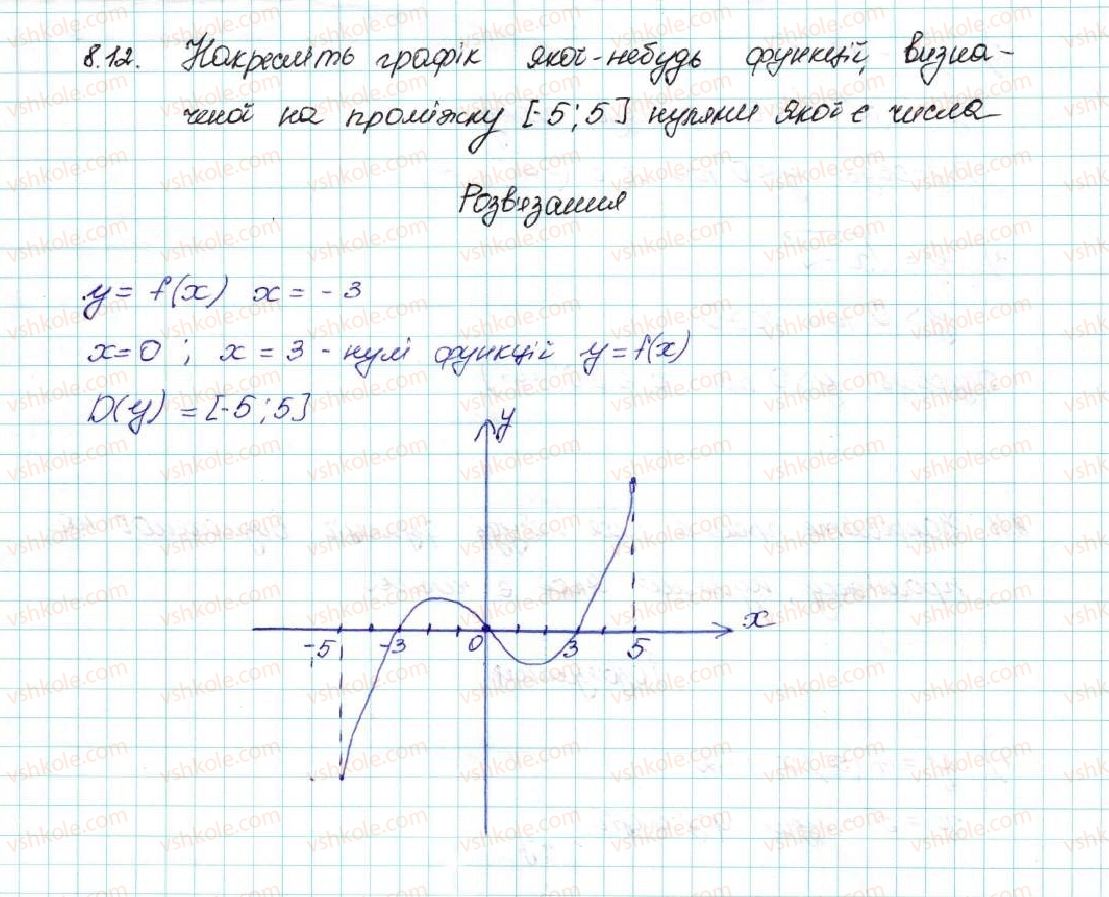 8.12. Накресліть графік якої-небудь функції, визна-
ченої на проміжку [-5; 5] нулями якої є числа
Розв'язання
y = f(x) x = -3
x=0 ; x = 3 - нулі функції y = f(x)
D(y) = [-5; 5]
y
x
-5 -3 0 3 5
vshkole.com